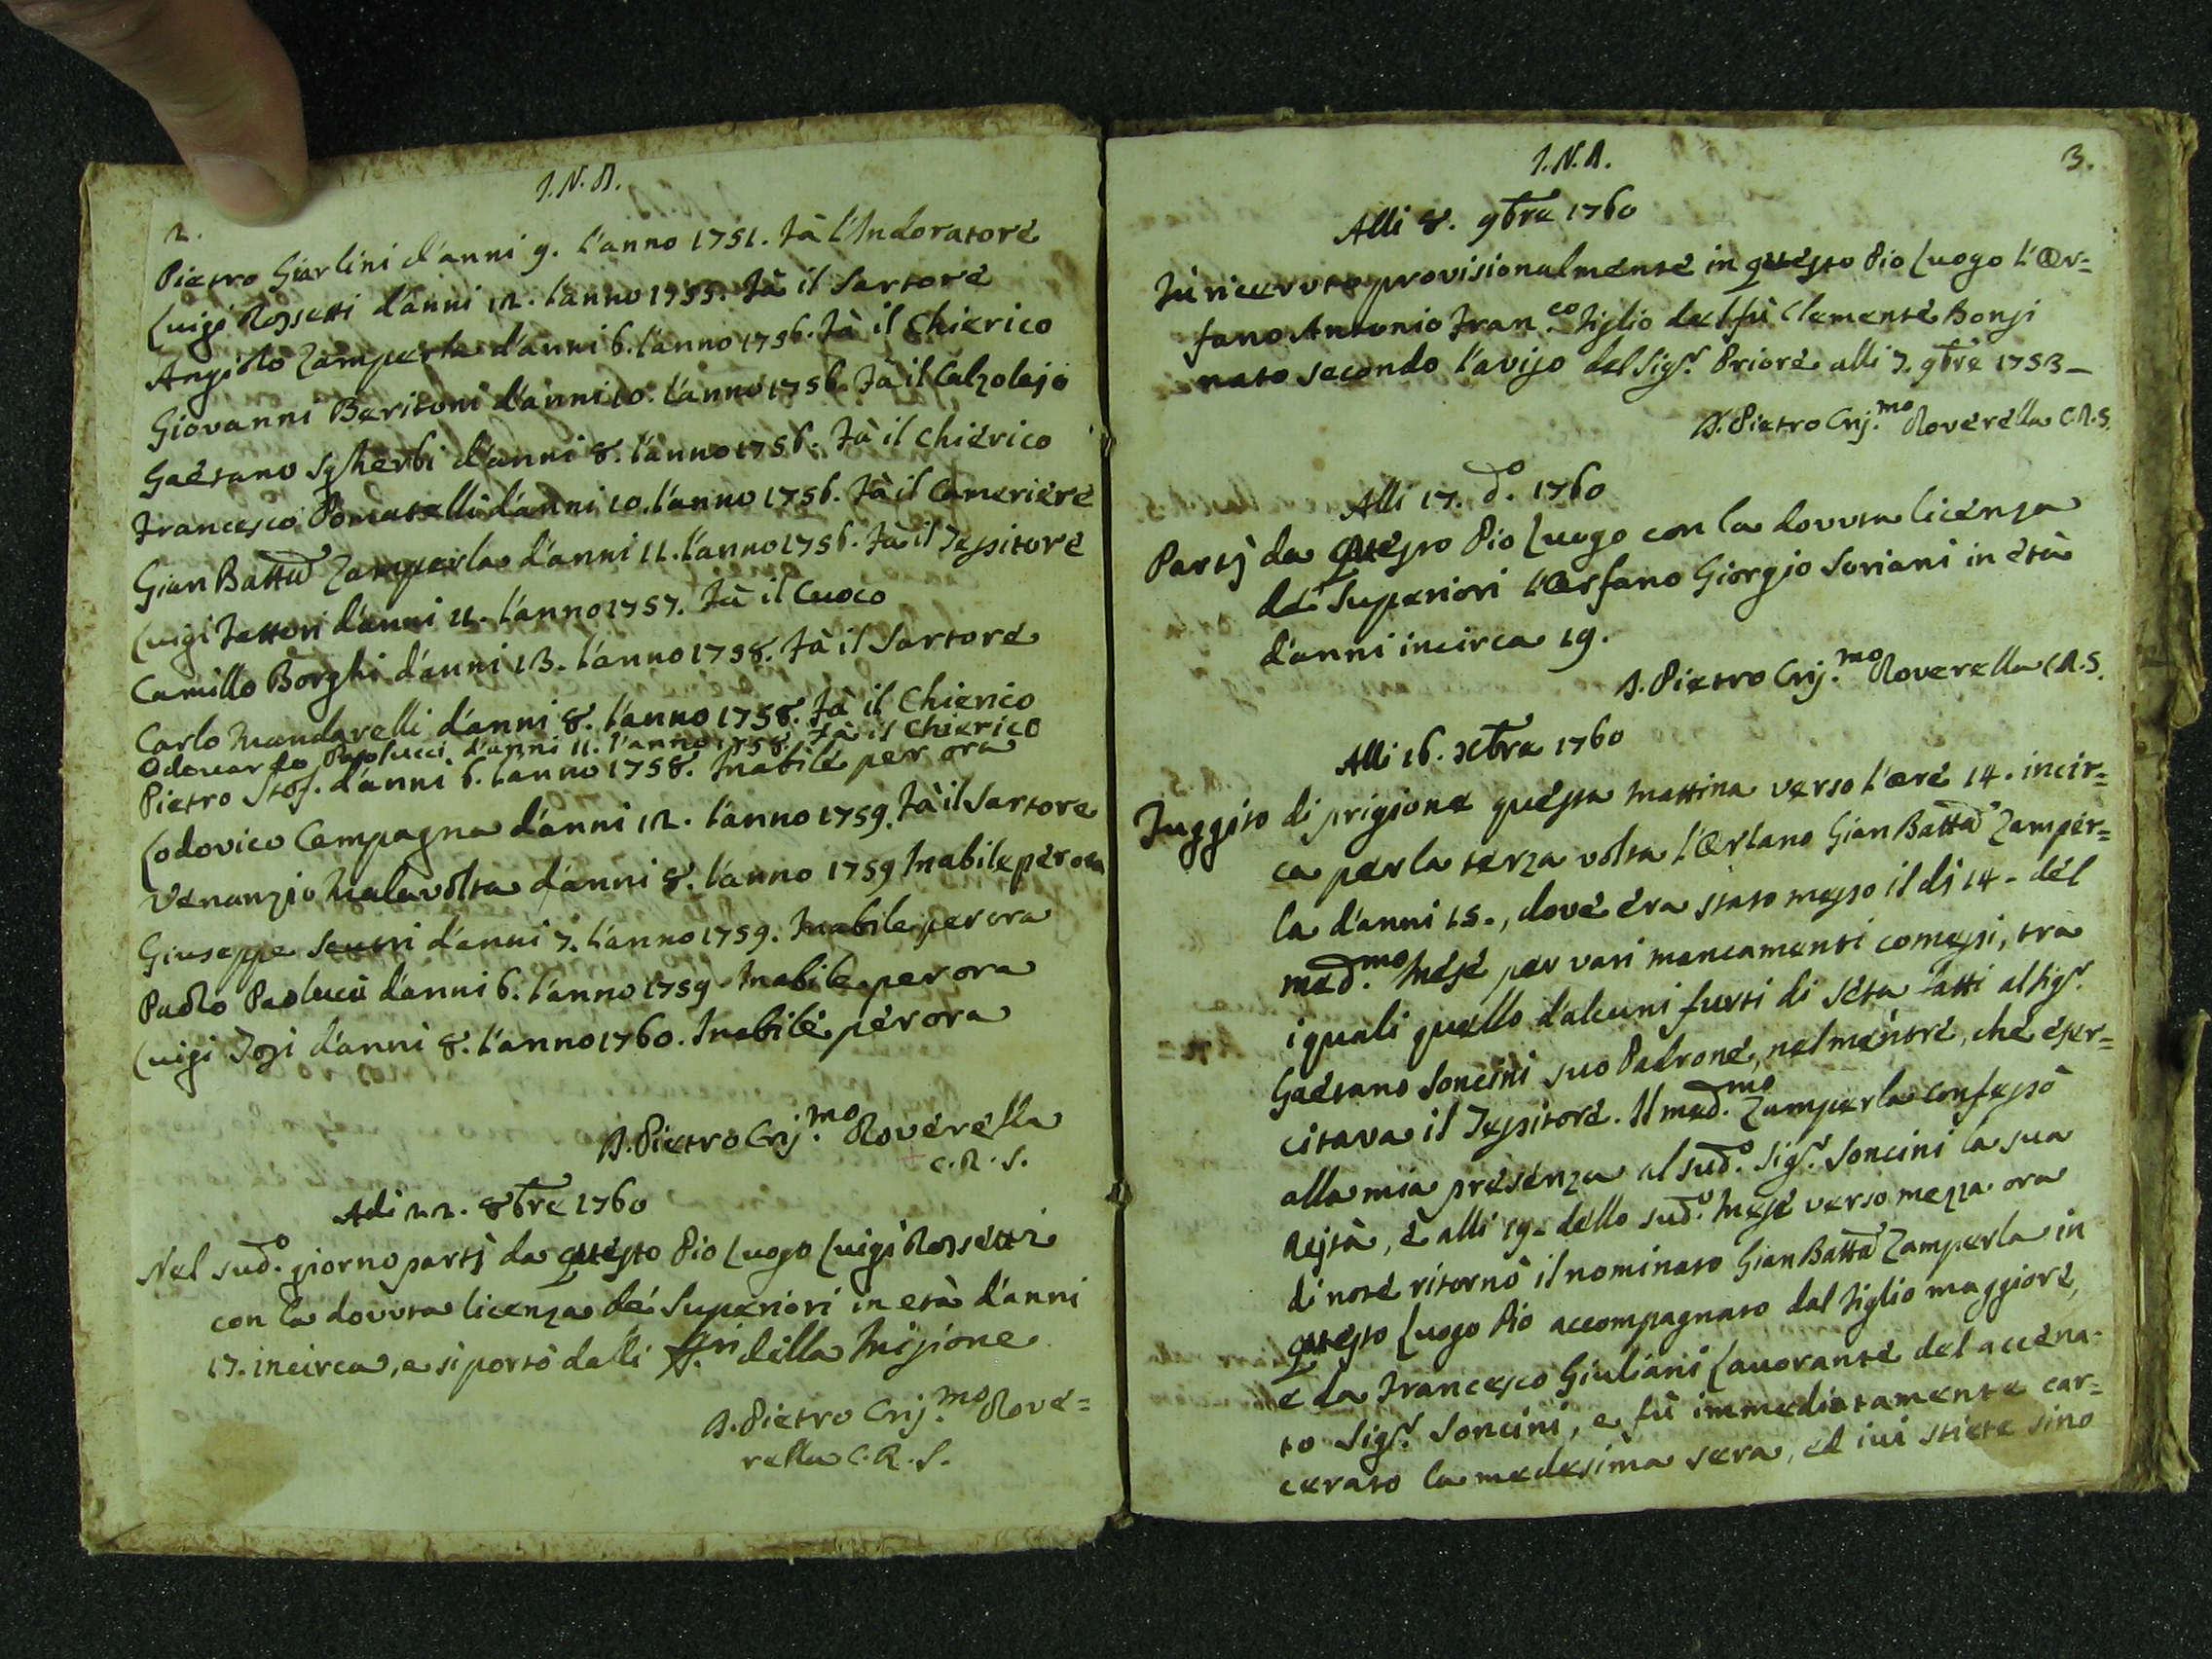 J.N.A.
2.
Pietro Giarlini d'anni 9. l'anno 1751. Fà l'Indoratore
Luigi Rossetti d'anni 12. l'anno 1755. Fà il Sartore
Angiolo Zamperla d'anni 6. l'anno 1756. Fà il Chierico
Giovanni Beritoni d'anni 10. l'anno 1756. Fà il Calzolajo
Gaetano Sgherbi d'anni 8. l'anno 1756. Fà il Chierico
Francesco Pomatelli d'anni 10. l'anno 1756. Fà il Cameriere
Gian Batta Zamperla d'anni 11. l'anno 1756. Fà il Tessitore
Luigi Fattori d'anni 11. l'anno 1757. Fà il Cuoco
Camillo Borghi d'anni 13. l'anno 1758. Fà il Sartore
Carlo Mandarelli d'anni 8. l'anno 1758. Fà il Chierico
Odouardo Papolucci d'anni 11. l'anno 1758. Fà il Chierico
Pietro Stof. d'anni 6. l'anno 1758. Inabile per ora
Lodovico Campagna d'anni 12. l'anno 1759. Fà il Sartore
Venanzio Malavolta d'anni 8. l'anno 1759 Inabile per ora
Giuseppe d'anni 7. l'anno 1759. Inabile per ora
Paolo Paolucci d'anni 6. l'anno 1759 Inabile per ora
Luigi d'anni 8. l'anno 1760. Inabile per ora
D. Pietro Crij.mo Roverella
C.R.S.
Adi 22. 8bre 1760
Nel sud.o giorno partj da questo Pio Luogo Luigi Rossetti
con la dovuta licenza de' Superiori in età d'anni
17. incirca, e si portò dalli Sig.ri della Missione
D. Pietro Crij.mo Rove=
rella C.R.S.
J.N.A.
3.
Alli 8. 9bre 1760
Fù ricevuto provisionalmente in questo Pio Luogo l'Or=
fano Antonio Fran.co Figlio del fù Clemente Bonsi
nato secondo l'aviso del Sig.r Priore alli 7. 9bre 1753_
D. Pietro Crij.mo Roverella C.R.S.
Alli 17. d.o 1760
Partj da questo Pio Luogo con la dovuta licenza
de' Superiori l'Orfano Giorgio Soriani in età
d'anni incirca 19.
D. Pietro Crij.mo Roverella C.R.S.
Alli 16. Xbre 1760
Fuggito di prigione questa mattina verso l'ore 14. incir=
ca per la terza volta l'Orfano Gian Batta Zamper=
la d'anni 15., dove era stato messo il dj 14. del
med.mo Mese per vari mancamenti comessi, trà
i quali quello d'alcuni furti di seta Fatti al Sig.r
Gaetano Soncini suo Padrone, nel mentre, che eser=
citava il Tessitore. Il med.mo Zamperla confessò
alla mia presenza al sud.o Sig.r Soncini la sua
Rejtà, e alli 19. dello sud.o Mese verso mezza ora
di note ritornò il nominato Gian Batta Zamperla in
questo Luogo Pio accompagnato dal Figlio maggiore,
e da Francesco Giuliani Lavorante del accena-
to Sig.r Soncini, e fù immediatamente car=
cerato la medesima sera, ed ivi stiete sino